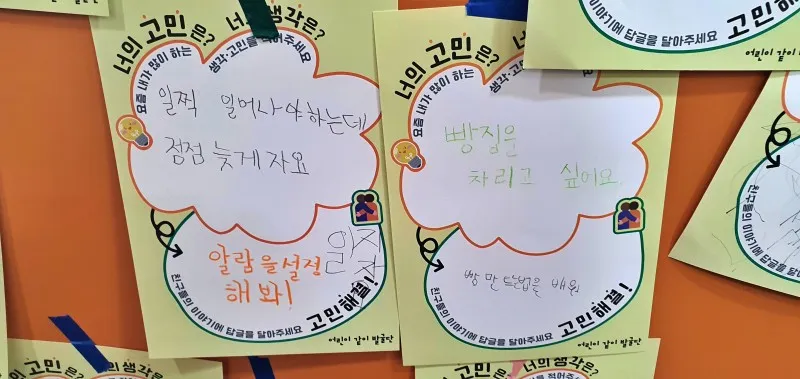 너의 고민은?
너의 생각은?
요즘 내가 많이 하는
생각·고민을 적어주세요
일찍 일어나야하는데
점점 늦게 자요
알람을설정
해 봐!
친구들의 이야기에 답글을 달아주세요
고민해결!
어린이 같이 발굴단
너의 고민은?
요즘 내가 많이 하는
생각·고민
빵집을
차리고 싶어요
빵 만드는법을 배워
친구들의 이야기에 답글을 달아주세요
고민해결!
어린이 같이 발굴단
이야기에 답글을 달아주세요
고민
어린이 같이
친구들의 이야기에 답글을 달아주세요
고민은?
너의 생각은?
너의 생각은?